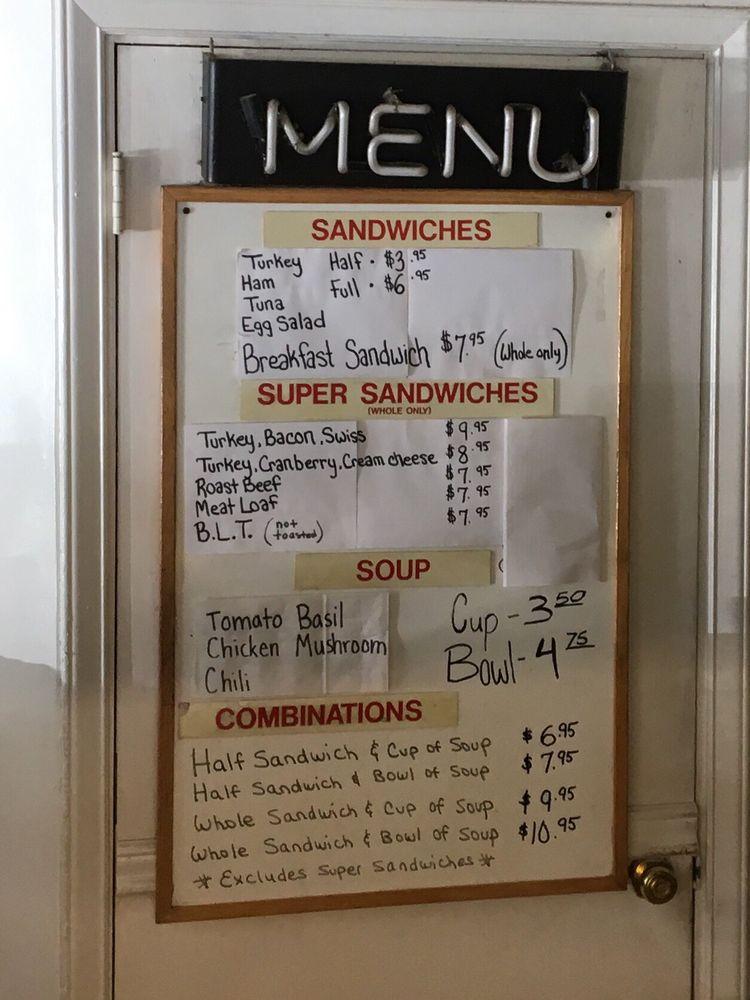 MENU
SANDWICHES
Turkey Half · $3.95
Ham Full · $6.95
Tuna
Egg Salad
Breakfast Sandwich $7.95 (Whole only)
SUPER SANDWICHES
(WHOLE ONLY)
Turkey, Bacon, Swiss $9.95
Turkey, Cranberry, Cream cheese $8.95
Roast Beef $7.95
Meat Loaf $7.95
B.L.T. (not toasted) $7.95
SOUP
Tomato Basil Cup - 3.50
Chicken Mushroom Bowl - 4.75
Chili
COMBINATIONS
Half Sandwich & Cup of Soup $6.95
Half Sandwich & Bowl of Soup $7.95
Whole Sandwich & Cup of Soup $9.95
Whole Sandwich & Bowl of Soup $10.95
* Excludes Super Sandwiches *